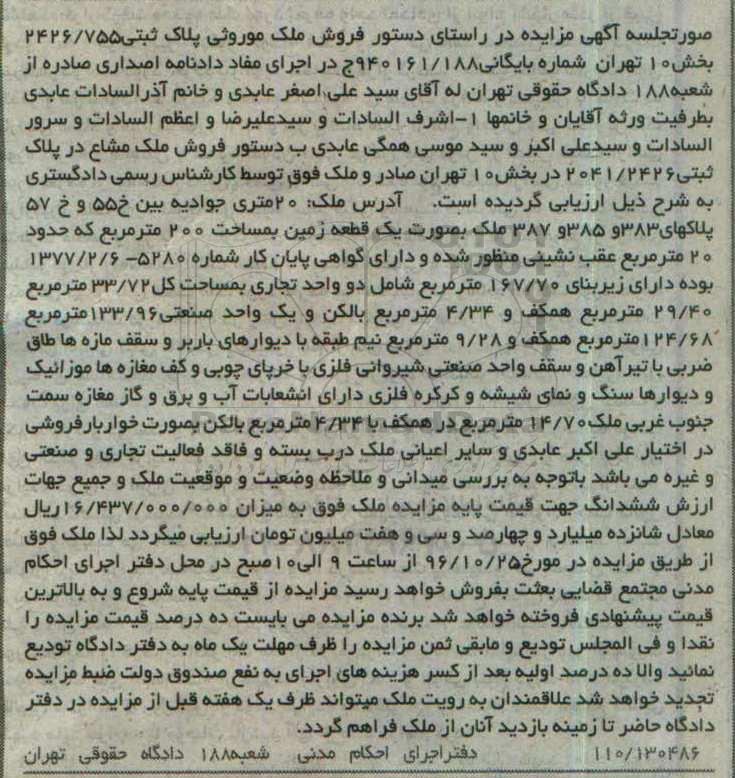 صورتجلسه آگهی مزایده در راستای دستور فروش ملک موروثی پلاک ثبتی۲۴۲۶/۷۵۵
بخش۱۰ تهران شماره بایگانی۹۴۰۱۶۱/۱۸۸ج در اجرای مفاد دادنامه اصداری صادره از
شعبه۱۸۸ دادگاه حقوقی تهران له آقای سید علی اصغر عابدی و خانم آذرالسادات عابدی
بطرفیت ورثه آقایان و خانمها ۱-اشرف السادات و سیدعلیرضا و اعظم السادات و سرور
السادات و سیدعلی اکبر و سید موسی همگی عابدی ب دستور فروش ملک مشاع در پلاک
ثبتی۲۰۴۱/۲۴۲۶ در بخش۱۰ تهران صادر و ملک فوق توسط کارشناس رسمی دادگستری
به شرح ذیل ارزیابی گردیده است. آدرس ملک: ۲۰متری جوادیه بین خ۵۵ و خ ۵۷
پلاکهای۳۸۳و ۳۸۵و ۳۸۷ ملک بصورت یک قطعه زمین بمساحت ۲۰۰ مترمربع که حدود
۲۰ مترمربع عقب نشینی منظور شده و دارای گواهی پایان کار شماره ۵۲۸۰- ۱۳۷۷/۲/۶
بوده دارای زیربنای ۱۶۷/۷۰ مترمربع شامل دو واحد تجاری بمساحت کل۳۳/۷۲ مترمربع
۲۹/۴۰ مترمربع همکف و ۴/۳۴ مترمربع بالکن و یک واحد صنعتی۱۳۳/۹۶مترمربع
۱۲۴/۶۸مترمربع همکف و ۹/۲۸ مترمربع نیم طبقه با دیوارهای باربر و سقف مازه ها طاق
ضربی با تیرآهن و سقف واحد صنعتی شیروانی فلزی با خرپای چوبی و کف مغازه ها موزائیک
و دیوارها سنگ و نمای شیشه و کرکره فلزی دارای انشعابات آب و برق و گاز مغازه سمت
جنوب غربی ملک۱۴/۷۰ مترمربع در همکف با ۴/۳۴ مترمربع بالکن بصورت خواربارفروشی
در اختیار علی اکبر عابدی و سایر اعیانی ملک درب بسته و فاقد فعالیت تجاری و صنعتی
و غیره می باشد باتوجه به بررسی میدانی و ملاحظه وضعیت و موقعیت ملک و جمیع جهات
ارزش ششدانگ جهت قیمت پایه مزایده ملک فوق به میزان ۱۶/۴۳۷/۰۰۰/۰۰۰ریال
معادل شانزده میلیارد و چهارصد و سی و هفت میلیون تومان ارزیابی میگردد لذا ملک فوق
از طریق مزایده در مورخ۹۶/۱۰/۲۵ از ساعت ۹ الی۱۰صبح در محل دفتر اجرای احکام
مدنی مجتمع قضایی بعثت بفروش خواهد رسید مزایده از قیمت پایه شروع و به بالاترین
قیمت پیشنهادی فروخته خواهد شد برنده مزایده می بایست ده درصد قیمت مزایده را
نقدا و فی المجلس تودیع و مابقی ثمن مزایده را ظرف مهلت یک ماه به دفتر دادگاه تودیع
نمائید والا ده درصد اولیه بعد از کسر هزینه های اجرای به نفع صندوق دولت ضبط مزایده
تجدید خواهد شد علاقمندان به رویت ملک میتواند ظرف یک هفته قبل از مزایده در دفتر
دادگاه حاضر تا زمینه بازدید آنان از ملک فراهم گردد.
۱۱۰/۱۳۰۴۸۶ دفتراجرای احکام مدنی شعبه۱۸۸ دادگاه حقوقی تهران